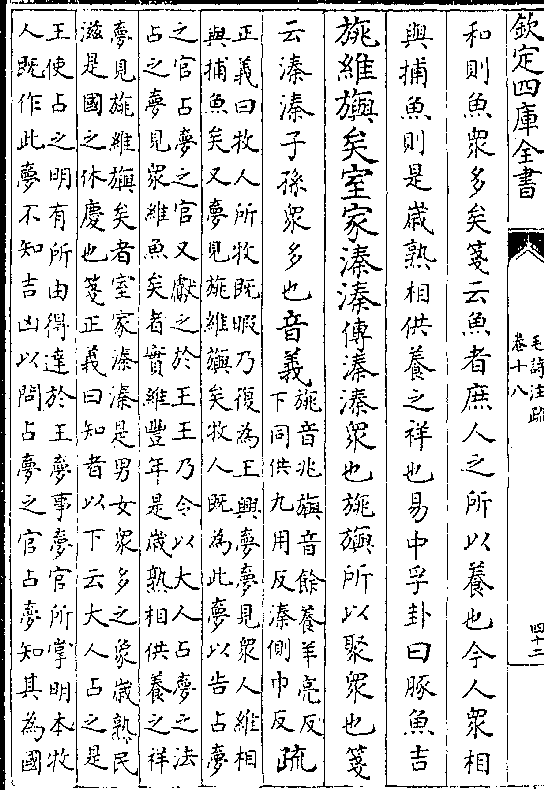 欽定四庫全書
毛詩注疏
卷十八
四十二
和則魚衆多矣箋云魚者庶人之所以養也今人衆相
與捕魚則是歲熟相供養之祥也易中孚卦曰豚魚吉
旐維旟矣室家溱溱傳溱溱衆也旐旟所以聚衆也箋
云溱溱子孫衆多也音義
旐音兆旟音餘養羊亮反
下同供九用反溱側巾反
疏
正義曰牧人所牧既暇乃復為王興夢夢見衆人維相
與捕魚矣又夢見旐維旟矣牧人既為此夢以告占夢
之官占夢之官又獻之於王王乃令以大人占夢之法
占之夢見衆維魚矣者實維豐年是歲熟相供養之祥
夢見旐維旟矣者室家溱溱是男女衆多之象歲熟民
滋是國之休慶也箋正義曰知者以下云大人占之是
王使占之明有所由得達於王夢事夢官所掌明本牧
人既作此夢不知吉凶以問占夢之官占夢知其為國